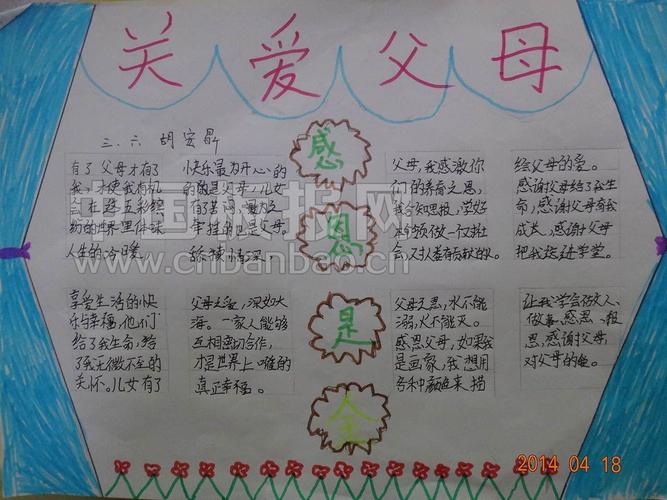 关爱父母
三.六 胡宏晶
感
恩
是
全
有了父母才有了
我,才使我有机
会在这五彩缤
纷的世界里体味
人生的冷暖
享受生活的快
乐与幸福,他们
给了我生命,给
了我无微不至的
关怀。儿女有了
快乐最为开心的
的的是父母,儿女
有了苦闷,最为之
牵挂的也是父母。
舐犊情深
父母之爱,深如大
海。一家人能够
互相密切合作,
才是世界上唯的
真正幸福。
父母,我感激你
们的养育之恩,
我会知恩报,学好
本领做一仅社
会,对人类有贡献的人
父母之恩,水不能
溺,火不能灭。
感恩父母,如果我
是画家,我想用
各种颜色来描
绘父母的爱。
感谢父母给了我生
命,感谢父母育我
成长,感谢父母
把我送进学堂。
让我学会做人、
做事。感恩、报
恩,感谢父母
对父母的爱。
中国板报网
www.cnbanbao.cn
2014 04 18